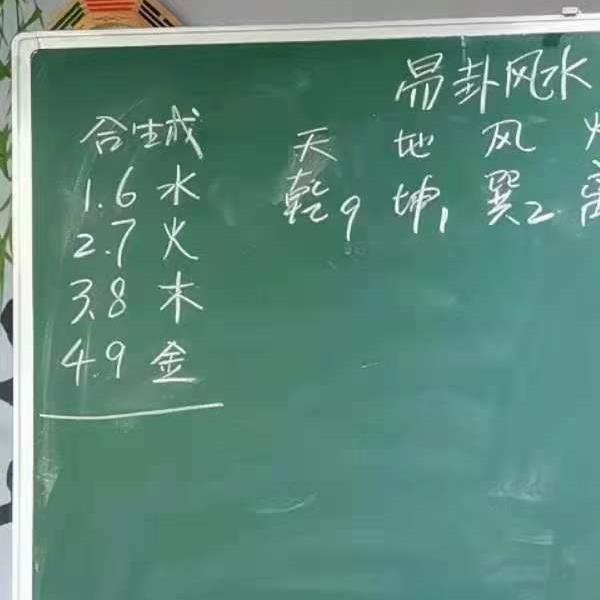 易卦风水
合生成
1.6 水
2.7 火
3.8 木
4.9 金
天 地 风 火
乾9 坤1 巽2 离